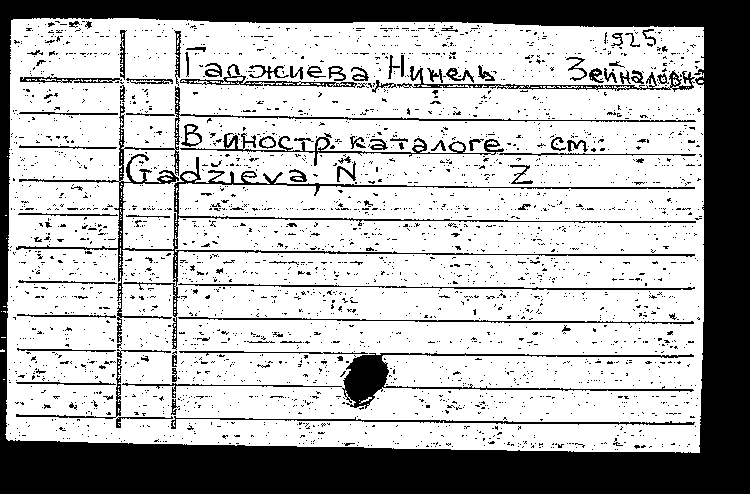 1925
Гаджиева, Нинель Зейналовна
В иностр. каталоге см.:
Gadžieva, N Z